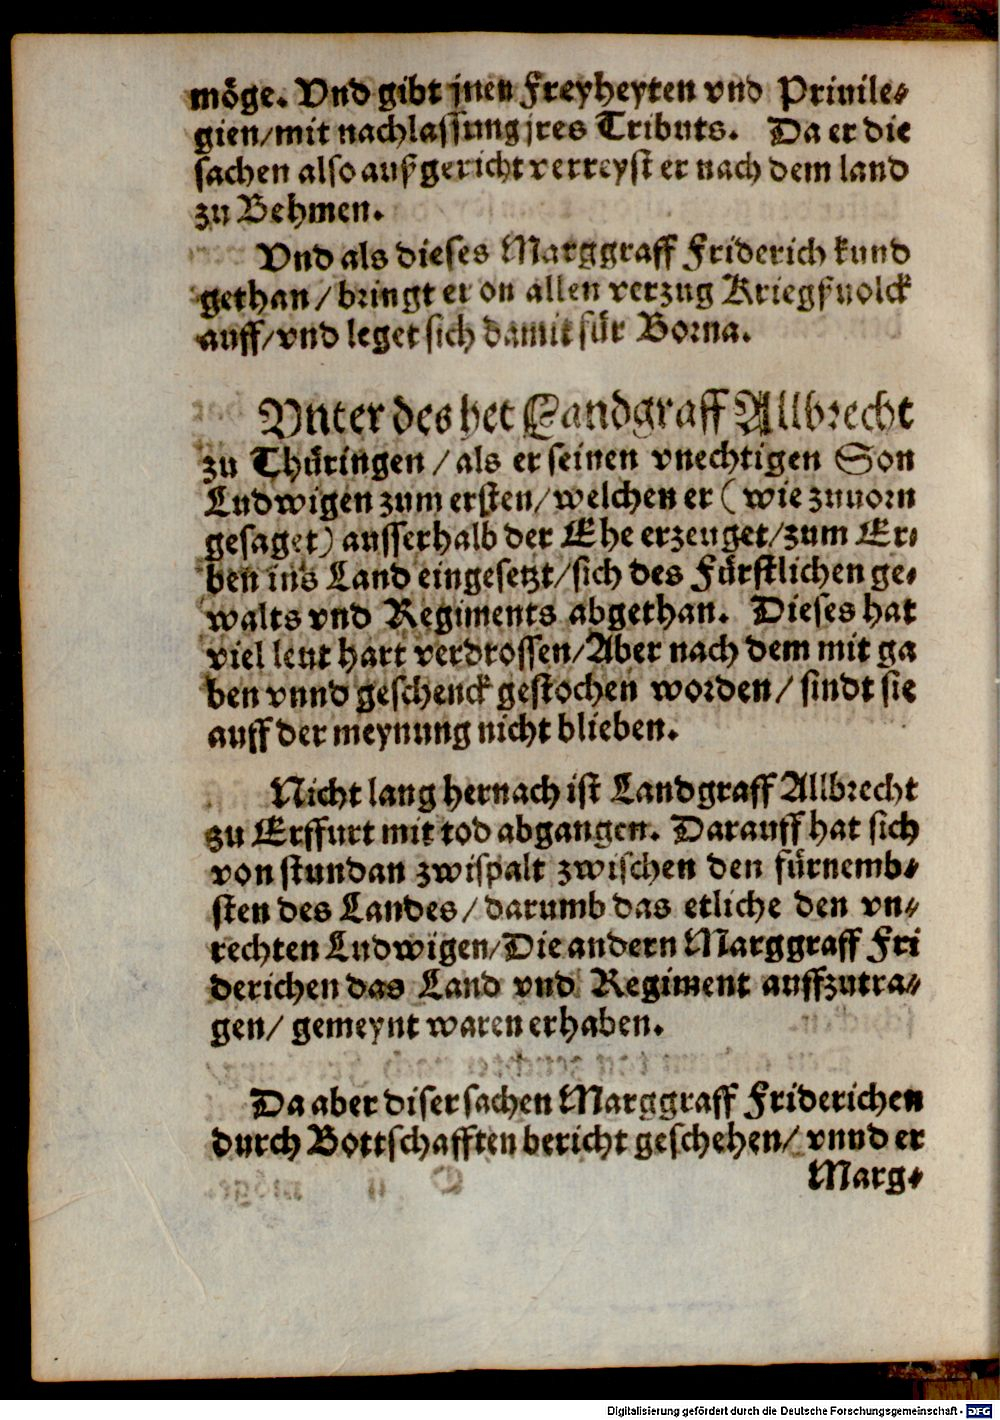 möge. Vnd gibt jnen Freyheyten vnd Priuile⸗
gien/mit nachlassung jres Tributs. Da er die
sachen also außgericht verreyst er nach dem land
zu Behmen.
Vnd als dieses Marggraff Friderich kund
gethan/ bringt er on allen verzug Kriegßuolck
auff/vnd leget sich damit für Borna.
Vnter des het Landgraff Allbrecht
zu Thüringen/als er seinen vnechtigen Son
Ludwigen zum ersten/welchen er (wie zuuorn
gesaget) ausserhalb der Ehe erzeuget/zum Er⸗
ben ins Land eingesetzt/sich des Fürstlichen ge⸗
walts vnd Regiments abgethan. Dieses hat
viel leut hart verdrossen/Aber nach dem mit ga
ben vnnd geschenck gestochen worden/ sindt sie
auff der meynung nicht blieben.
Nicht lang hernach ist Landgraff Allbrecht
zu Erffurt mit tod abgangen. Darauff hat sich
von stundan zwispalt zwischen den fürnemb⸗
sten des Landes/darumb das etliche den vn⸗
rechten Ludwigen/Die andern Marggraff Fri
derichen das Land vnd Regiment auffzutra⸗
gen/ gemeynt waren erhaben.
Da aber diser sachen Marggraff Friderichen
durch Bottschafften bericht geschehen/ vnnd er
Marg⸗
Digitalisierung gefördert durch die Deutsche Forschungsgemeinschaft - DFG